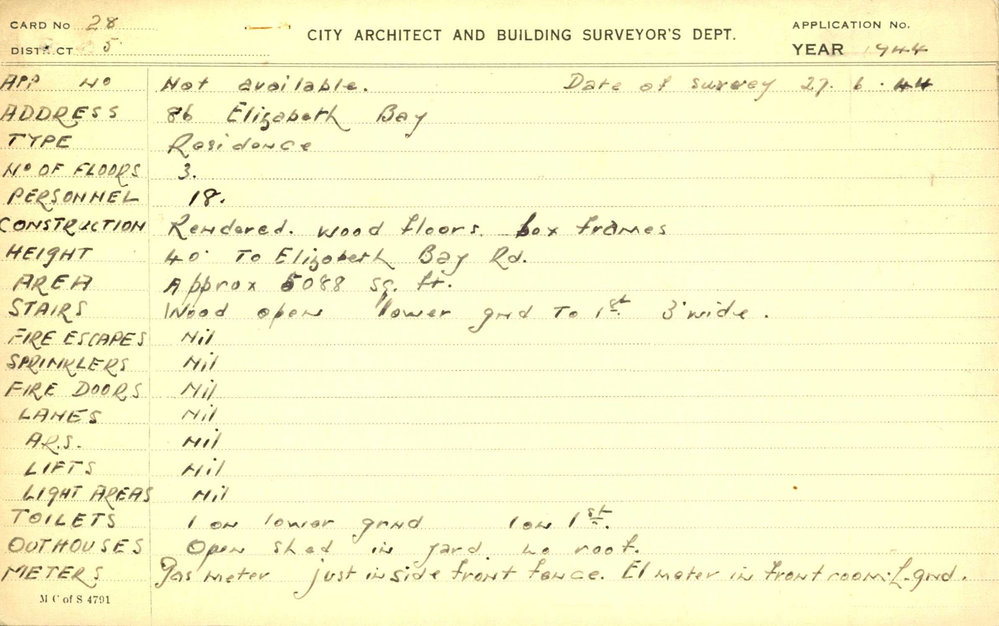 CARD No 28
CITY ARCHITECT AND BUILDING SURVEYOR'S DEPT.
APPLICATION No.
DISTRICT 5
YEAR 1944
APP No Not available. Date of survey 27. 6. 44
ADDRESS 86 Elizabeth Bay
TYPE Residence
No OF FLOORS 3.
PERSONNEL 18.
CONSTRUCTION Rendered. wood floors. box frames
HEIGHT 40' To Elizabeth Bay Rd.
AREA Approx 5088 sq. ft.
STAIRS Wood open lower gnd To 1st 3' wide.
FIRE ESCAPES Nil
SPRINKLERS Nil
FIRE DOORS Nil
LANES Nil
A.R.S. Nil
LIFTS Nil
LIGHT AREAS Nil
TOILETS 1 on lower grnd 1 on 1st.
OUTHOUSES Open shed in yard. no roof.
METERS Gas meter just inside front fence. El meter in front room L. gnd.
M C of S 4791